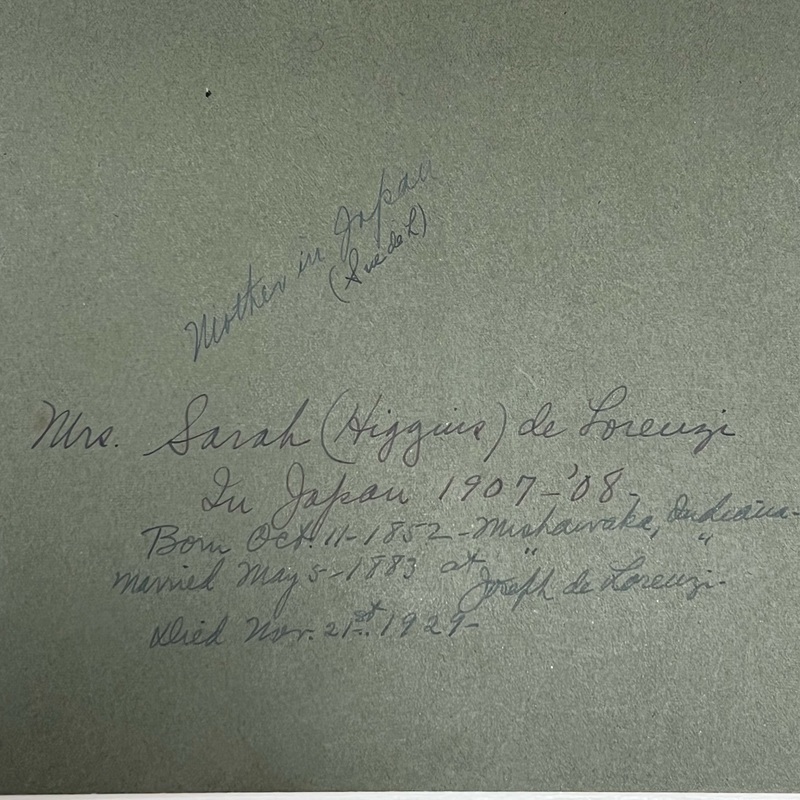 Mother in Japan
(Sue de L)
Mrs. Sarah (Higgins) de Lorenzi
In Japan 1907-'08-
Born Oct. 11-1852-Mishawaka, Indiana-
Married May 5-1883 at " "
Joseph de Lorenzi-
Died Nov. 21st. 1929-